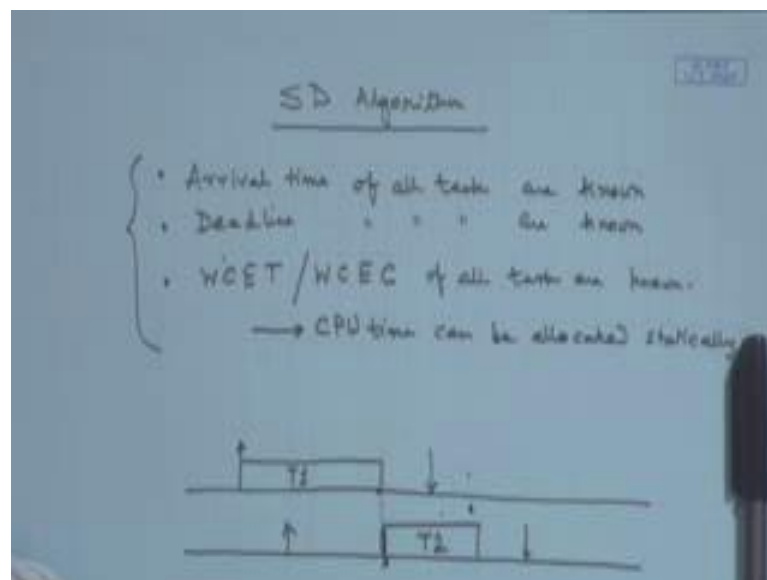 SD Algorithm
• Arrival time of all task are known
• Deadline " " " are known
• WCET / WCEC of all task are known.
→ CPU time can be allocated statically
T1
T2